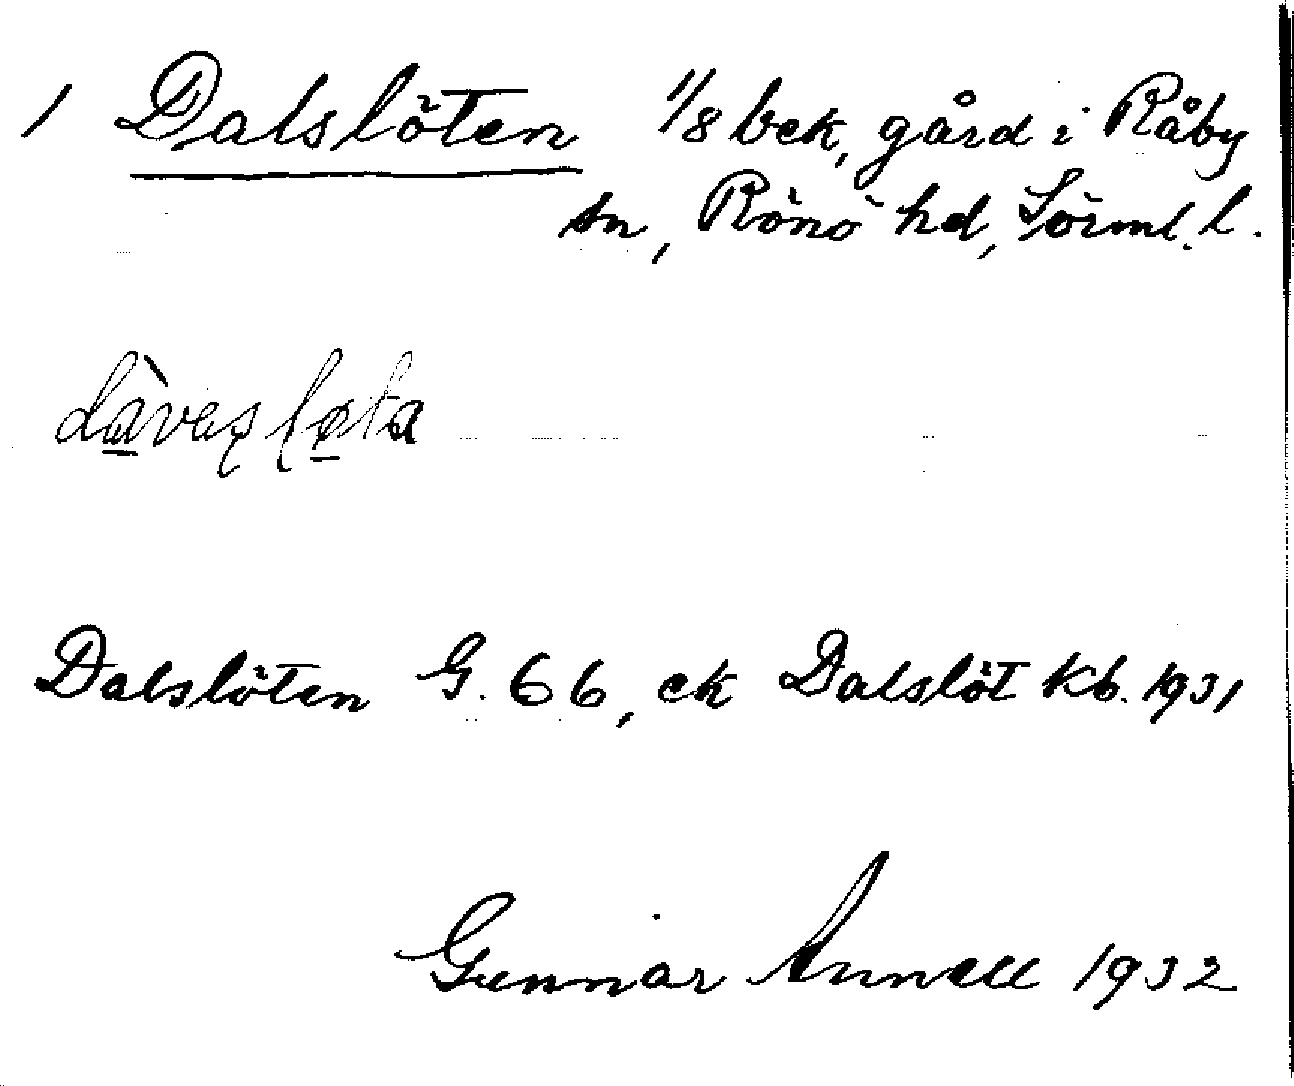 1 Dalslöten 1/8 bek, gård i Råby
sn, Rönö hd, Sörml. l.
Dalslöten G. 66, ek Dalslöt Kb. 1931
Gunnar Annell 1932